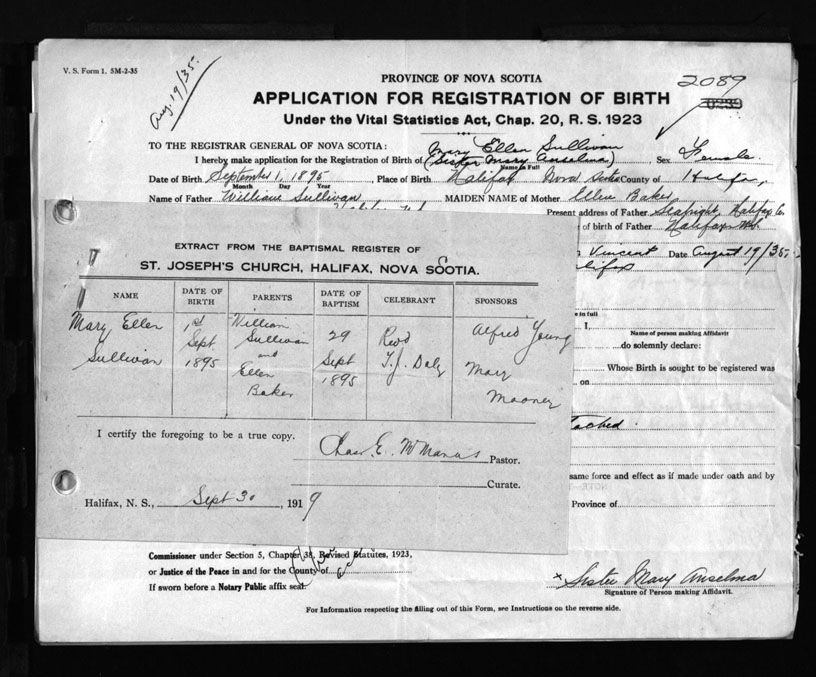 V. S. Form 1. 5M-2-35
Aug. 19/35.
PROVINCE OF NOVA SCOTIA
2089
APPLICATION FOR REGISTRATION OF BIRTH
Under the Vital Statistics Act, Chap. 20, R. S. 1923
TO THE REGISTRAR GENERAL OF NOVA SCOTIA:
Mary Ellen Sullivan
I hereby make application for the Registration of Birth of (Sister Mary Anselma) Sex Female.
Name in Full
Date of Birth September 1, 1895, Place of Birth Halifax Nova Scotia County of Halifax,
Month Day Year
Name of Father William Sullivan MAIDEN NAME of Mother Ellen Baker,
Present address of Father Seabright, Halifax Co.
of birth of Father Halifax, N.S.
Vincent Date August 19/35.
EXTRACT FROM THE BAPTISMAL REGISTER OF
ST. JOSEPH'S CHURCH, HALIFAX, NOVA SCOTIA.
NAME DATE OF BIRTH PARENTS DATE OF BAPTISM CELEBRANT SPONSORS
Mary Ellen 1st William 29 Revd Alfred Young
Sullivan Sept Sullivan Sept T.J. Daly Mary
1895 and 1895 Mooney
Ellen
Baker
I certify the foregoing to be a true copy.
Chas. E. McManus Pastor.
Curate.
Halifax, N. S., Sept 30, 1919
in full
I,
Name of person making Affidavit
do solemnly declare:
Whose Birth is sought to be registered was
on
same force and effect as if made under oath and by
Province of
Commissioner under Section 5, Chapter 38, Revised Statutes, 1923,
or Justice of the Peace in and for the County of
If sworn before a Notary Public affix seal.
x Sister Mary Anselma
Signature of Person making Affidavit.
For Information respecting the filling out of this Form, see Instructions on the reverse side.